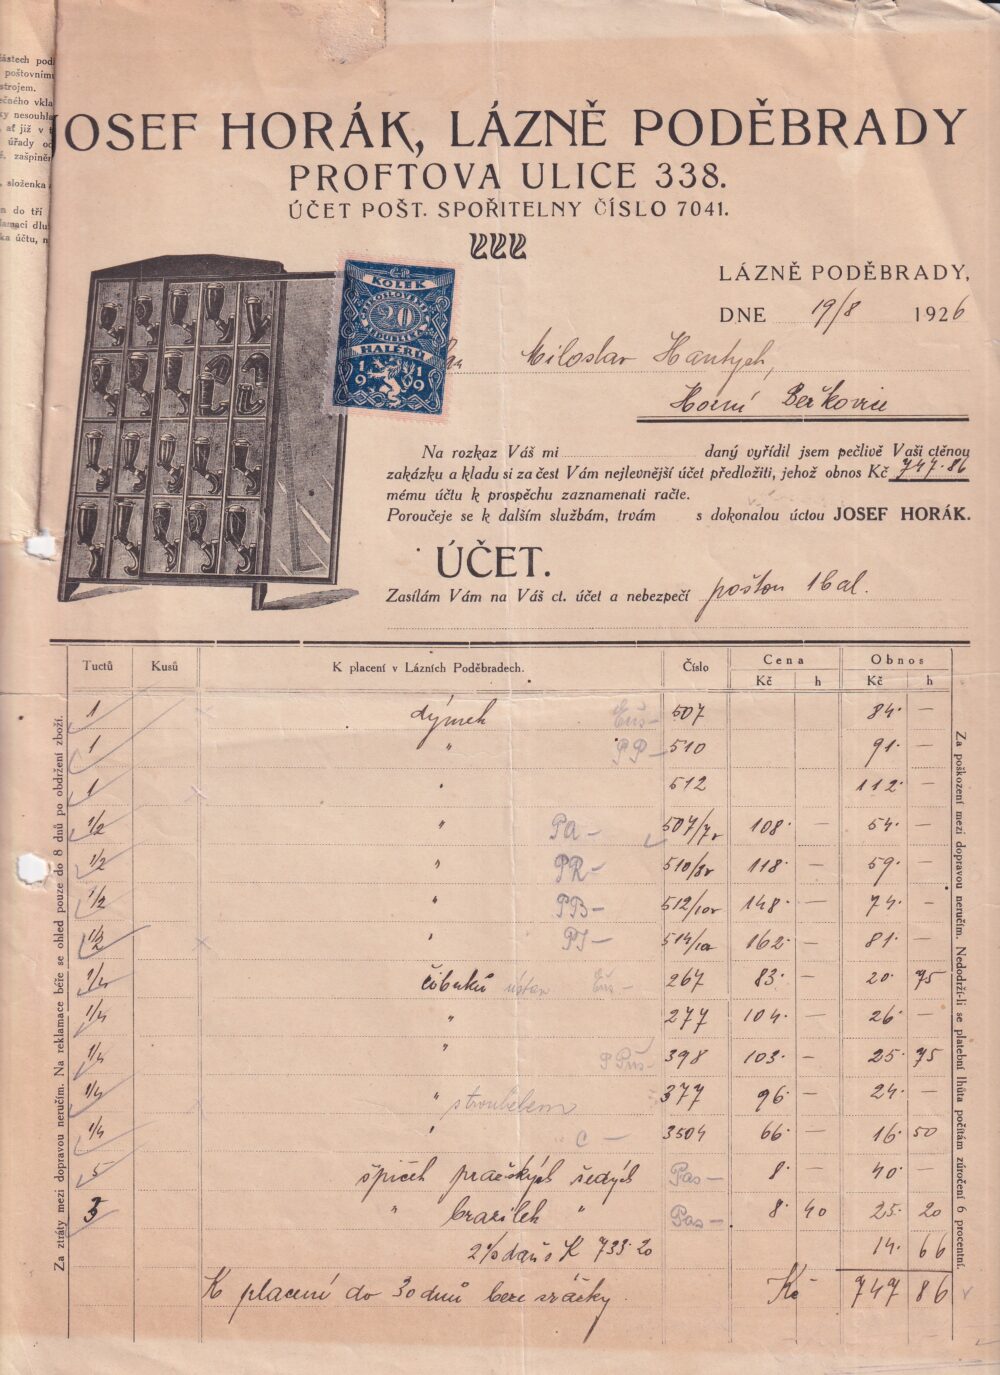 ástech pod
poštovním
strojem.
ečného vkla
ky nesouhla
ať již v
úřady
zašpiněn
složenka
do tří
lamaci dlu
ka účtu,
JOSEF HORÁK, LÁZNĚ PODĚBRADY
PROFTOVA ULICE 338.
ÚČET POŠT. SPOŘITELNY ČÍSLO 7041.
LÁZNĚ PODĚBRADY,
DNE 19/8 1926
Č.P.
KOLEK
ČESKOSLOVENSKÁ
20
REPUBLIKA
HALÉŘŮ
1919
Miloslav Hantych,
Horní Beřkovice
Na rozkaz Váš mi daný vyřídil jsem pečlivě Vaši ctěnou
zakázku a kladu si za čest Vám nejlevnější účet předložiti, jehož obnos Kč 747·86
mému účtu k prospěchu zaznamenati račte.
Poroučeje se k dalším službám, trvám s dokonalou úctou JOSEF HORÁK.
ÚČET.
Zasílám Vám na Váš ct. účet a nebezpečí poštou 1 bal.
Tuctů Kusů K placení v Lázních Poděbradech. Číslo Cena Obnos
Kč h Kč h
1 dýmek 507 84·—
1 " PP— 510 91·—
1 " 512 112·—
1/2 " Pa— 507/7v 108·— 54·—
1/2 " PR— 510/8v 118·— 59·—
1/2 " PB— 512/10v 148·— 74·—
1/2 " PJ— 514/10 162·— 81·—
1/4 čibuků 267 83·— 20·75
1/4 " 277 104·— 26·—
1/4 " 398 103·— 25·75
1/4 " stroubelem 377 96·— 24·—
1/4 " " C— 3504 66·— 16·50
5 špiček pražských šedých Pas— 8·— 40·—
3 " brazilek " Pas— 8·40 25·20
2% daň z K 733·20 14·66
K placení do 30 dnů beze srážky. Kč 747 86
Za ztráty mezi dopravou neručím. Na reklamace béře se ohled pouze do 8 dnů po obdržení zboží.
Za poškození mezi dopravou neručím. Nedodrží-li se platební lhůta počítám zúročení 6 procentní.